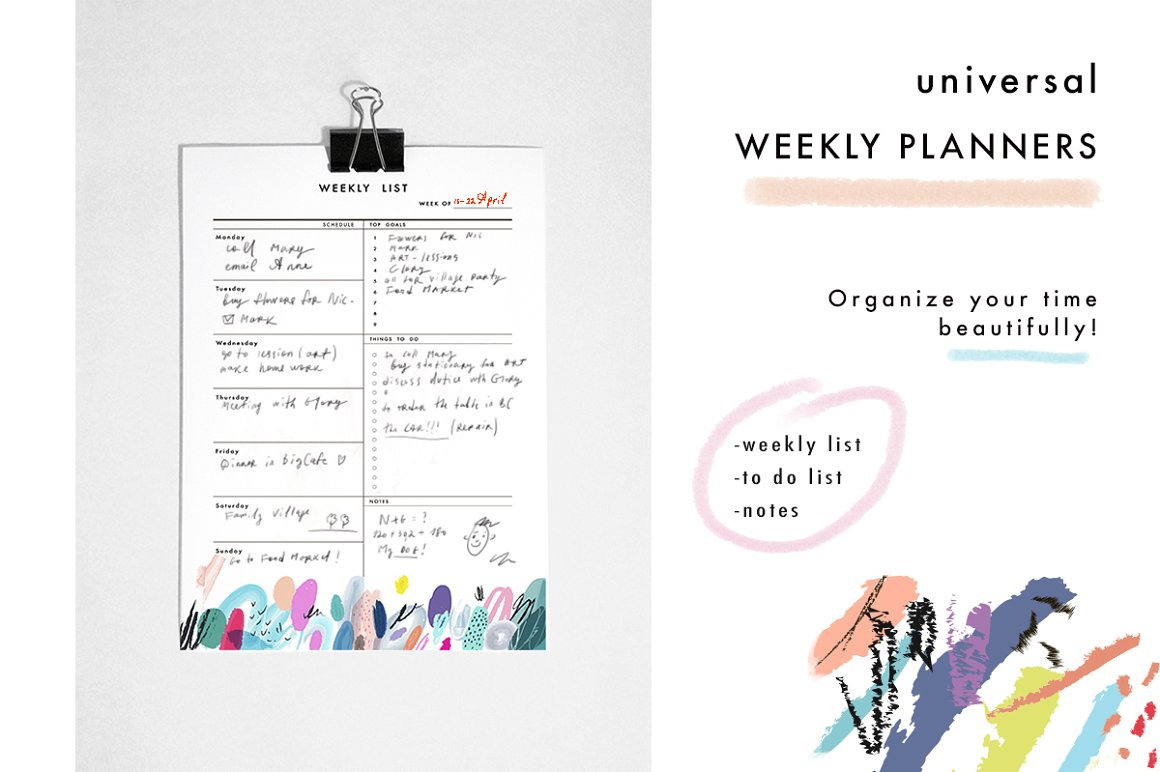 universal
WEEKLY PLANNERS
Organize your time
beautifully!
-weekly list
-to do list
-notes
WEEKLY LIST
WEEK OF 15-22 April
SCHEDULE
Monday
call Mary
email Anne
Tuesday
Buy flowers for Nic.
☑ Mark
Wednesday
go to session (art)
make home work
Thursday
Meeting with Glory
Friday
Dinner in BigCafe ♡
Saturday
Family Village
Sunday
Go to Food Market!
TOP GOALS
1 Flowers for Nic
2 Mark
3 ART-lessions
4 Glory
5 all for village party
6 Food Market
7
8
9
THINGS TO DO
call Mary
Buy stationary for ART
discuss with Glory
to order the table in BC
the CAR!!! (Repair)
NOTES
N+G=?
My DOG!